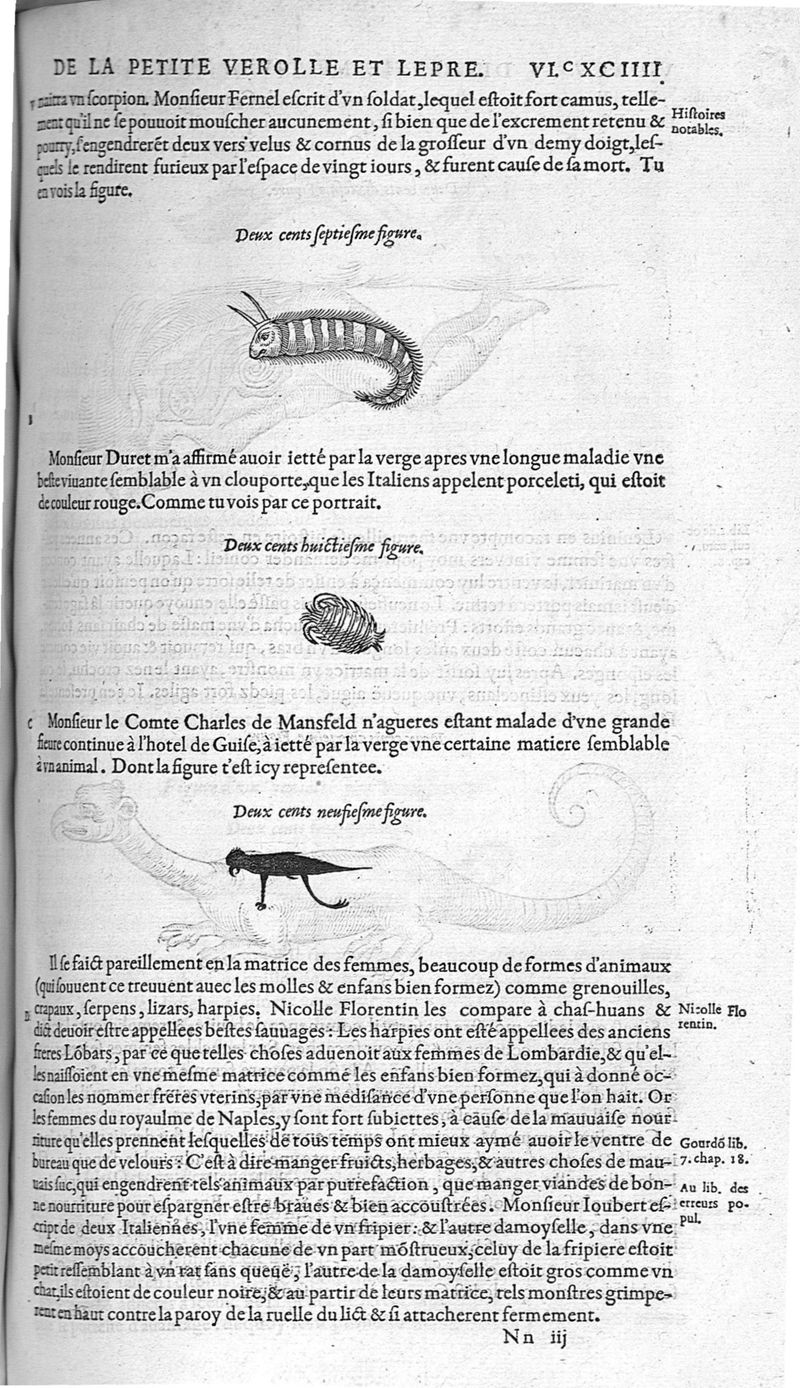 DE LA PETITE VEROLLE ET LEPRE. VI.C XCIIII.
naitra vn ſcorpion. Monſieur Fernel eſcrit d'vn ſoldat, lequel eſtoit fort camus, telle-
ment qu'il ne ſe pouuoit mouſcher aucunement, ſi bien que de l'excrement retenu &
pourry, ſ'engendrerẽt deux vers velus & cornus de la groſſeur d'vn demy doigt, leſ-
quels le rendirent furieux par l'eſpace de vingt iours, & furent cauſe de ſa mort. Tu
en vois la figure.
Hiſtoires
notables.
Deux cents ſeptieſme figure.
Monſieur Duret m'a affirmé auoir ietté par la verge apres vne longue maladie vne
beſte viuante ſemblable à vn clouporte, que les Italiens appelent porceleti, qui eſtoit
de couleur rouge. Comme tu vois par ce portrait.
Deux cents huictieſme figure.
C Monſieur le Comte Charles de Mansfeld n'agueres eſtant malade d'vne grande
fieure continue à l'hotel de Guiſe, à ietté par la verge vne certaine matiere ſemblable
à vn animal. Dont la figure t'eſt icy repreſentee.
Deux cents neufieſme figure.
Il ſe faict pareillement en la matrice des femmes, beaucoup de formes d'animaux
(qui ſouuent ce treuuent auec les molles & enfans bien formez) comme grenouilles,
crapaux, ſerpens, lizars, harpies. Nicolle Florentin les compare à chaſ-huans &
dict deuoir eſtre appellees beſtes ſauuages: Les harpies ont eſté appellees des anciens
freres Lõbars, par ce que telles choſes aduenoit aux femmes de Lombardie, & qu'el-
les naiſſoient en vne meſme matrice commé les enfans bien formez, qui à donné oc-
caſion les nommer fréres vterins, par vne mediſance d'vne perſonne que l'on hait. Or
les femmes du royaulme de Naples, y ſont fort ſubiettes, à cauſe de la mauuaiſe nour
riture qu'elles prennent leſquelles de tous temps ont mieux aymé auoir le ventre de
bureau que de velours: C'eſt à dire manger fruicts, herbages, & autres choſes de mau-
uais ſuc, qui engendrent tels animaux par putrefaction, que manger viandes de bon-
ne nourriture pour eſpargner eſtre braues & bien accouſtrées. Monſieur Ioubert eſ-
cript de deux Italiennes, l'vne femme de vn fripier: & l'autre damoyſelle, dans vne
meſme moys accoucherent chacune de vn part mõſtrueux, celuy de la fripiere eſtoit
petit reſſemblant à vn rat ſans queuë, l'autre de la damoyſelle eſtoit gros comme vn
chat, ils eſtoient de couleur noire, & au partir de leurs matrice, tels monſtres grimpe-
rent en haut contre la paroy de la ruelle du lict & ſi attacherent fermement.
Nicolle Flo
rentin.
Gourdõ lib.
7. chap. 18.
Au lib. des
erreurs po-
pul.
Nn iij